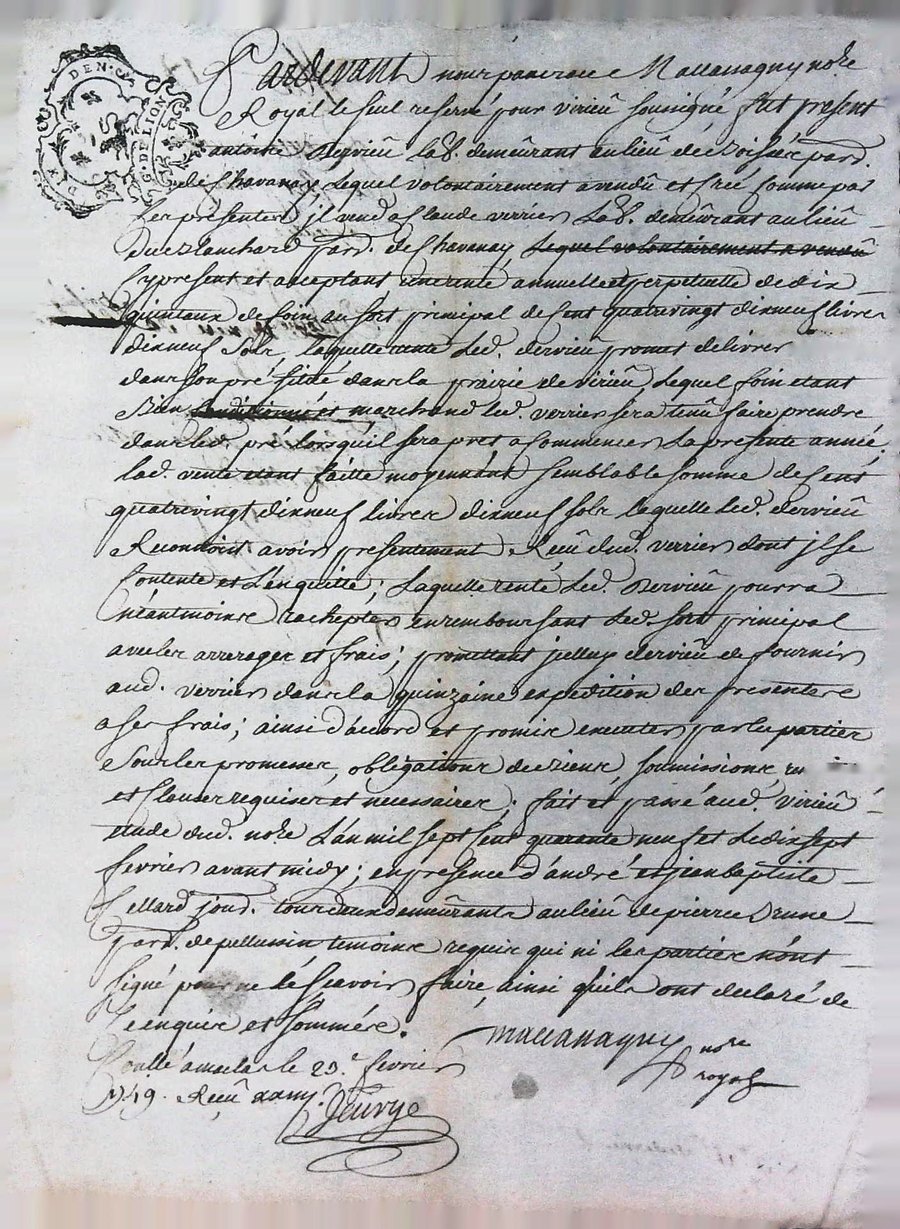 DIX DEN. G. DE LION
Pardevant nous pancrace Maccanagny no.re
Royal le seul reservé pour virieû soussigné fut present
antoine Dervieû Lab. demeûrant au lieû de par.
de Chavanay Lequel volontairement a vendû et crée comme par
les presentes jl vend a Claude verrier Lab. demeûrant au lieû
du Blanchard par. de Chavanay, Lequel volontairement a vendû
Cy present et acceptant une rente annuelle et perpetuelle de dix
quintaux de foin au sort principal de Cent quatrevingt dixneuf livres
dixneuf Sols, laquelle rente Led. dervieû promet delivrer
dans son pré sitüé dans la prairie de virieû, Lequel foin etant
Bien Conditionné et marchand led. verrier sera tenû faire prendre
dans led. pré lorsqu'il sera pret a Commencer La presente année,
lad. vente etant faitte moyennant semblable somme de Cent
quatrevingt dixneuf livres dixneuf sols laquelle led. dervieû
Reconnoit avoir presentement Reçû dud. verrier dont jl se
Contente et L'enquitte; Laquelle rente Led. Dervieû pourra
Néantmoins rachepter en remboursant Led. sort principal
avec les arrerages et frais; promettant jcelluy dervieû de fournir
aud. verrier dans la quinzaine expedition des presentes
a ses frais; ainsi d'acord et promis executer par les parties
Sous les promesses, obligations de Biens, soumissions,
et Clauses requises et necessaires; fait et passé aud. virieû
etude dud. no.re L'an mil sept Cent quarante neuf et Le dixsept
fevrier avant midy; en presence d'andré et jean baptiste
Tellard jour. tous deux demeûrants au lieû de pierres Brune
par. de pellussin temoins requis qui ni les parties n'ont
signé pour ne le sçavoir faire, ainsi qu'ils ont declaré de
Ce enquis et sommés.
Maccanagny no.re
royal
Conllé a malas le 23.e fevrier
1749. Reçû
Jeurye